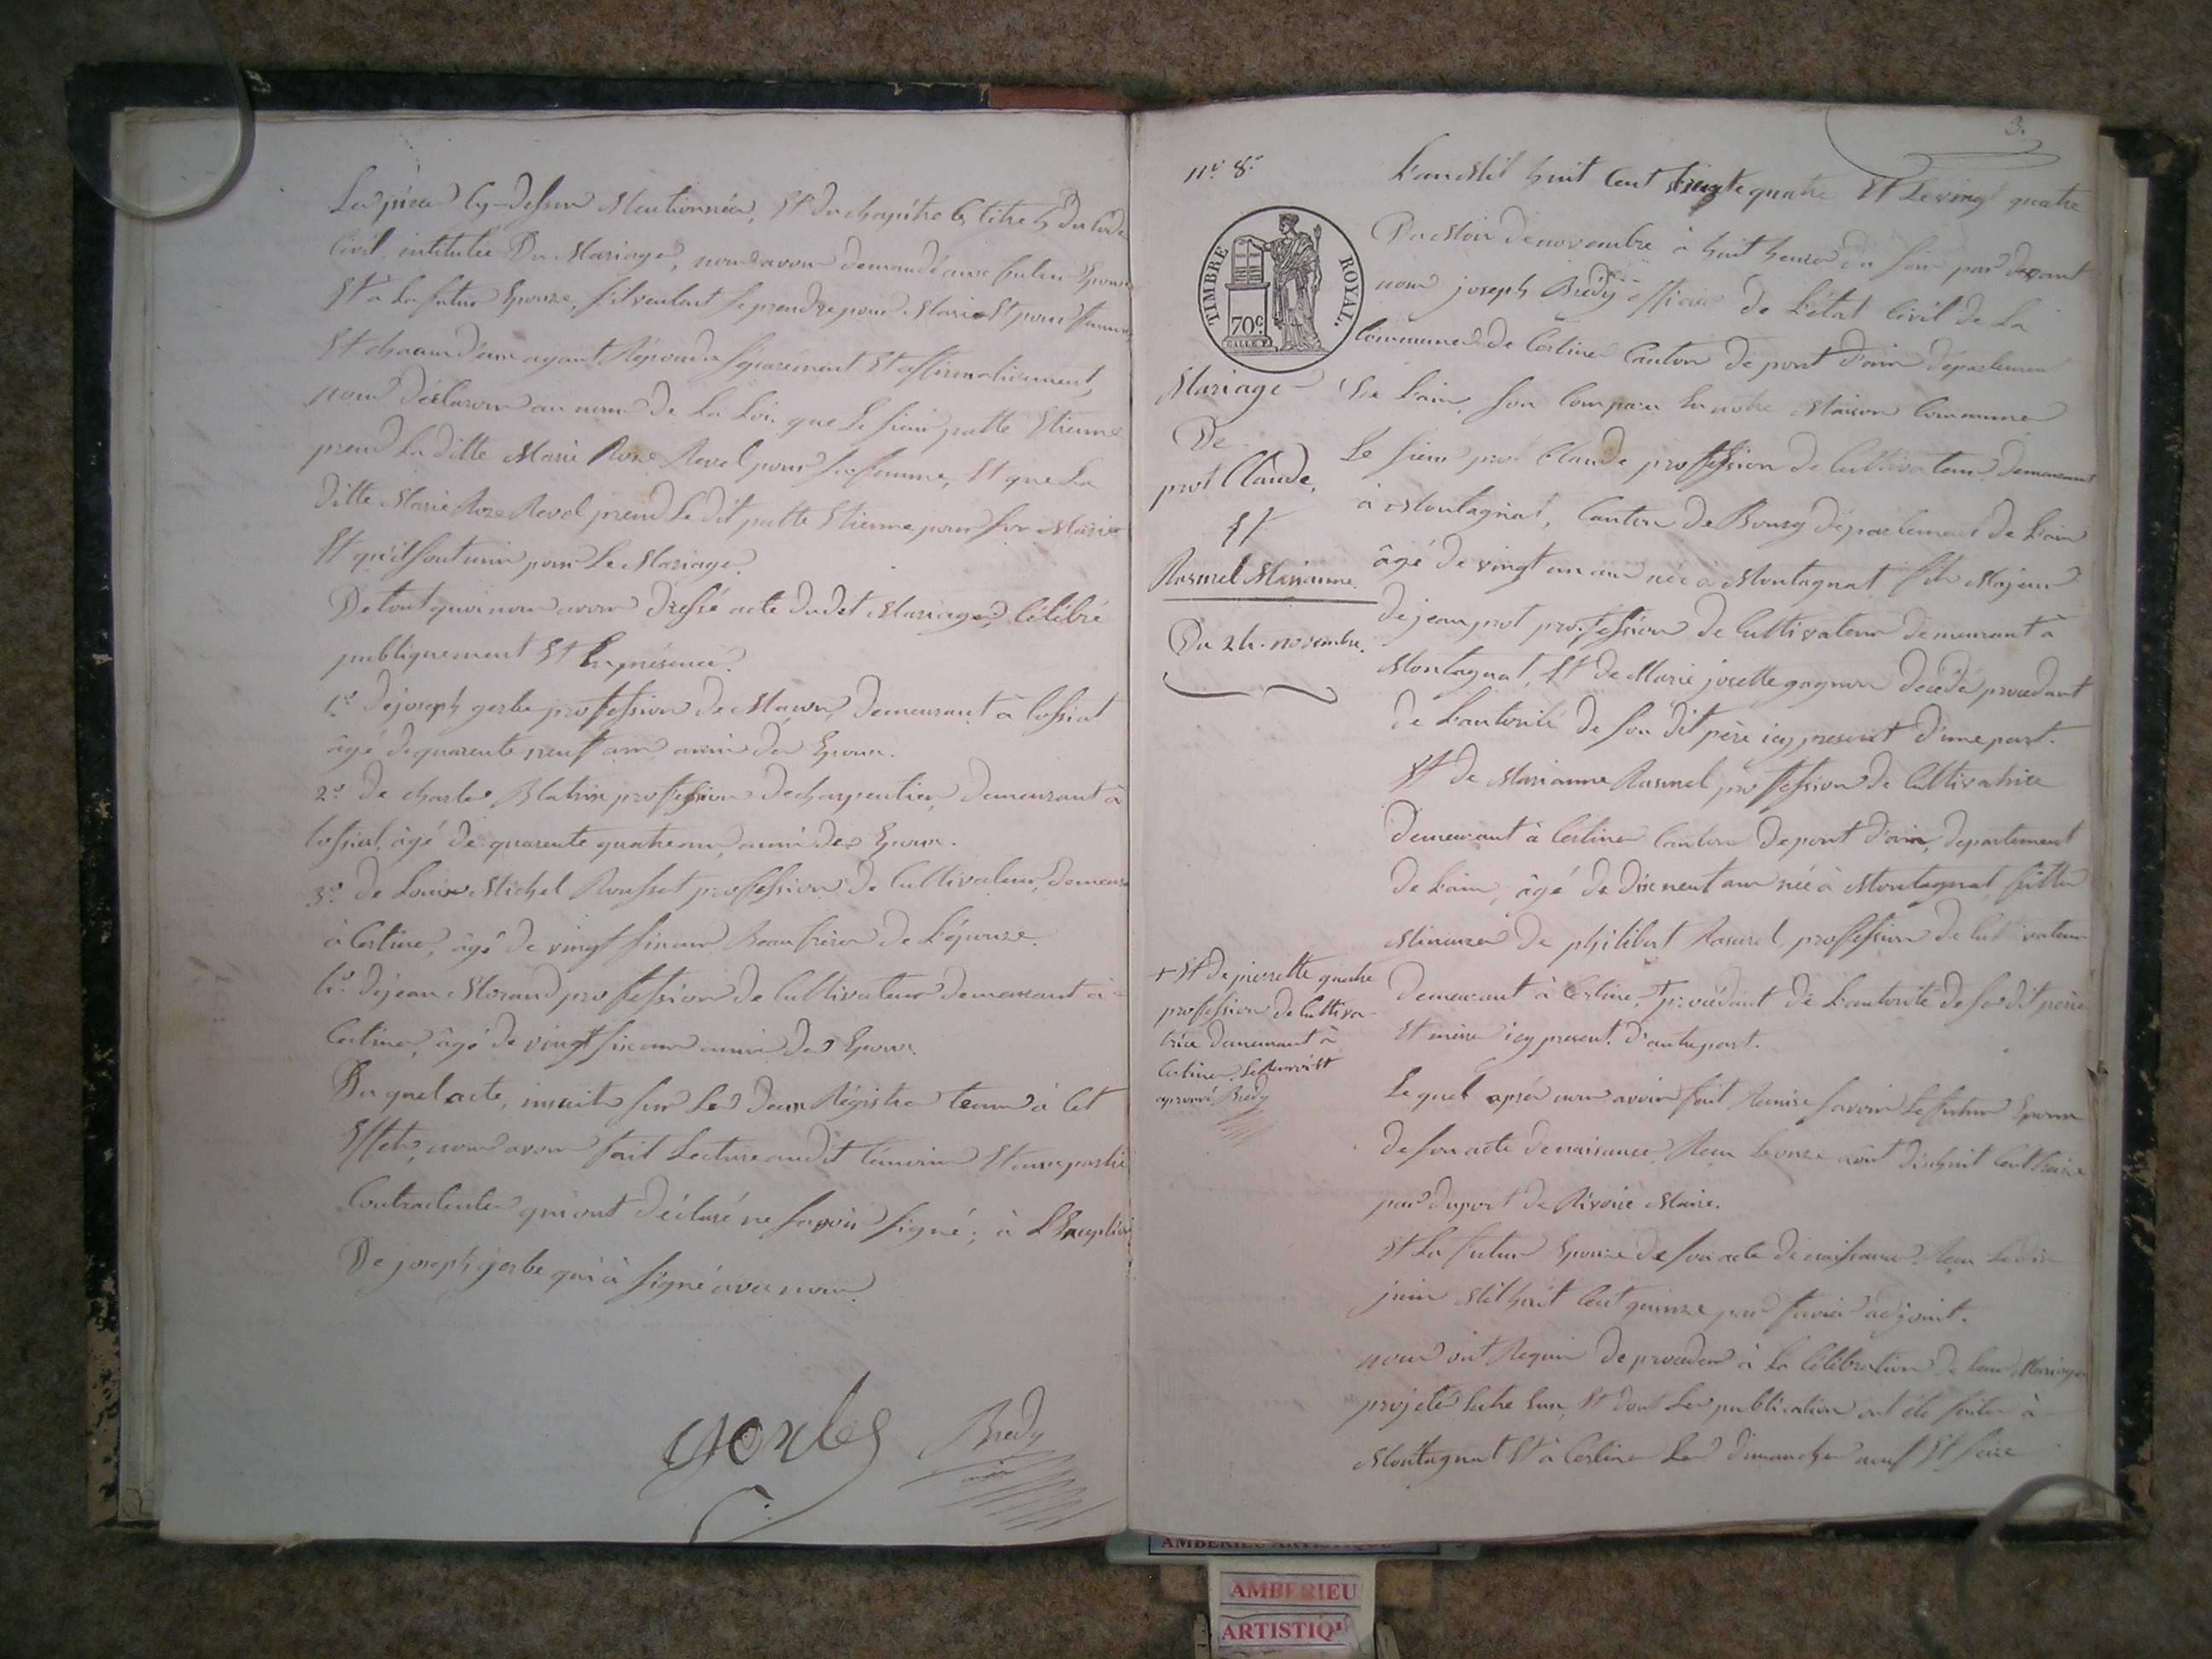 Les pièces Cy-dessus Mentionnées, Et du chapitre 6, titre 5 du Code
Civil, intitulée Du Mariage, nous avons demandé aux futur Epoux
Et à La future Epouze, s'il veulent se prendre pour Marie Et pour femme,
Et chacun d'eux ayant Répondu séparement Et affirmativement,
nous déclarons au nom de La Loi, que Le sieur patte Etienne
prend La ditte Marie Roze Revel pour sa femme, Et que La
ditte Marie Roze Revel prend Le dit patte Etienne pour son Marie
Et qu'il sont unis par Le Mariage.
De tout quoi nous avons dressé acte dudit Mariage, Célébré
publiquement Et En présence.
1.º de joseph gerbe profession de Maçon, demeurant à Cossiat
âgé de quarente neuf ans amis des Epoux.
2.º De charles Blatrix profession de charpentier, demeurant à
Cossiat, âgé de quarente quatre ans, amis des Epoux.
3.º de Louis Michel Rousset profession de Cultivateur, demeura
à Certine, âgé de vingt sinc ans Beau frère de L'épouze.
4.º de jean Morand profession de Cultivateur demeurant à
Certine, âgé de vingt six ans amis des Epoux.
Du quel acte, inscrit sur Les deux Régistre tenus à Cet
Effets, nous avons fait Lecture audit témoins Et aux partie
Contractentes qui ont déclaré ne savoir signé, à L'Exception
De joseph gerbe qui à signé avec nous.
gerbe Bredy
3.
n.º 8.
L'an Mil huit Cent trente quatre Et Le vingt quatre
Du Mois de novembre à huit heures du soir par devant
nous joseph Bredy officier de L'état Civil de La
Commune de Certine Canton de pont d'ain département
De L'ain, son Comparu En notre Maison Commune
TIMBRE ROYAL.
70c
Mariage
De
prot Claude,
Et
Rasurel Marianne.
Du 24. novembre.
Le sieur prot Claude profession de Cultivateur demeurant
à Montagnat, Canton de Bourg département de L'ain
âgé de vingt un ans née à Montagnat fils Majeur
de jean prot profession de Cultivateur demeurant à
Montagnat, Et de Marie josette gagnon decédé procédant
de L'autorité de son dit père icy present d'une part.
Et de Marianne Rasurel profession de Cultivatrice
demeurant à Certine Canton de pont d'ain, departement
de L'ain, âgé de dix neuf ans née à Montagnat fille
Mineure de philibert Rasurel, profession de Cultivateur
demeurant à Certine, + procédant de L'autorité de son dit père
Et mère icy present. d'autre part.
+ Et de pierrette quatre
profession de Cultiva-
trice demeurant à
Certine. Le Renvoi Et
aprouvé Bredy
Le quel après nous avoir fait Remise savoir Le futur Epoux
de son acte de naisance, Reçu Le onze août dixhuit Cent treize
par duport de Rivoire Maire.
Et La future Epouze de son acte de naissance Reçu Le dix
juin Mil huit Cent quinze par favier adjoint.
nous ont Requis de proceder à La Célébration de Leur Mariage
projeté Entre Eux, Et dont Les publication ont été faites à
Montagnat Et à Certine Les dimanches neuf Et seize
AMBERIEU ARTISTIQUE
AMBERIEU
ARTISTIQ